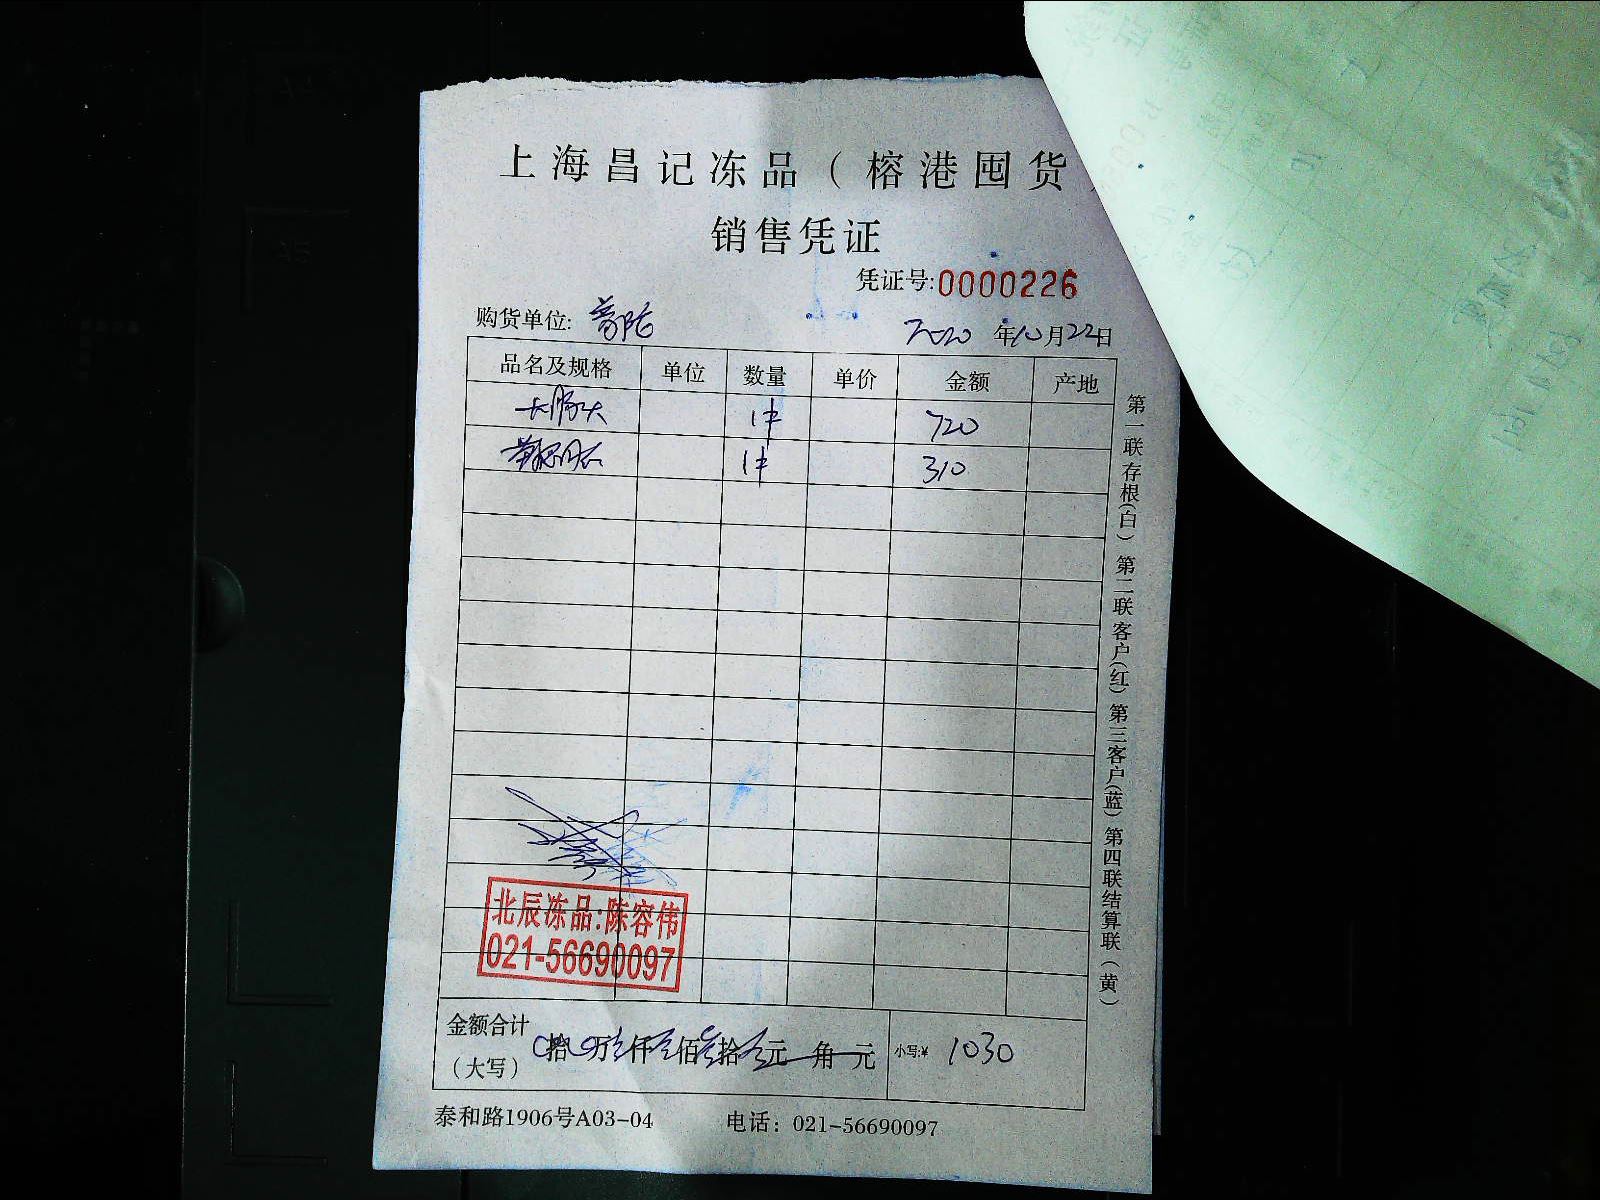 上海昌记冻品（榕港囤货
销售凭证
凭证号:0000226
购货单位:
2020 年10月22日
品名及规格 单位 数量 单价 金额 产地
1件 720
1件 310
北辰冻品:陈容伟
021-56690097
金额合计
（大写） 拾 万 仟 佰 拾 元 角 元 小写:¥ 1030
泰和路1906号A03-04 电话：021-56690097
第一联存根(白) 第二联客户(红) 第三客户(蓝) 第四联结算联(黄)